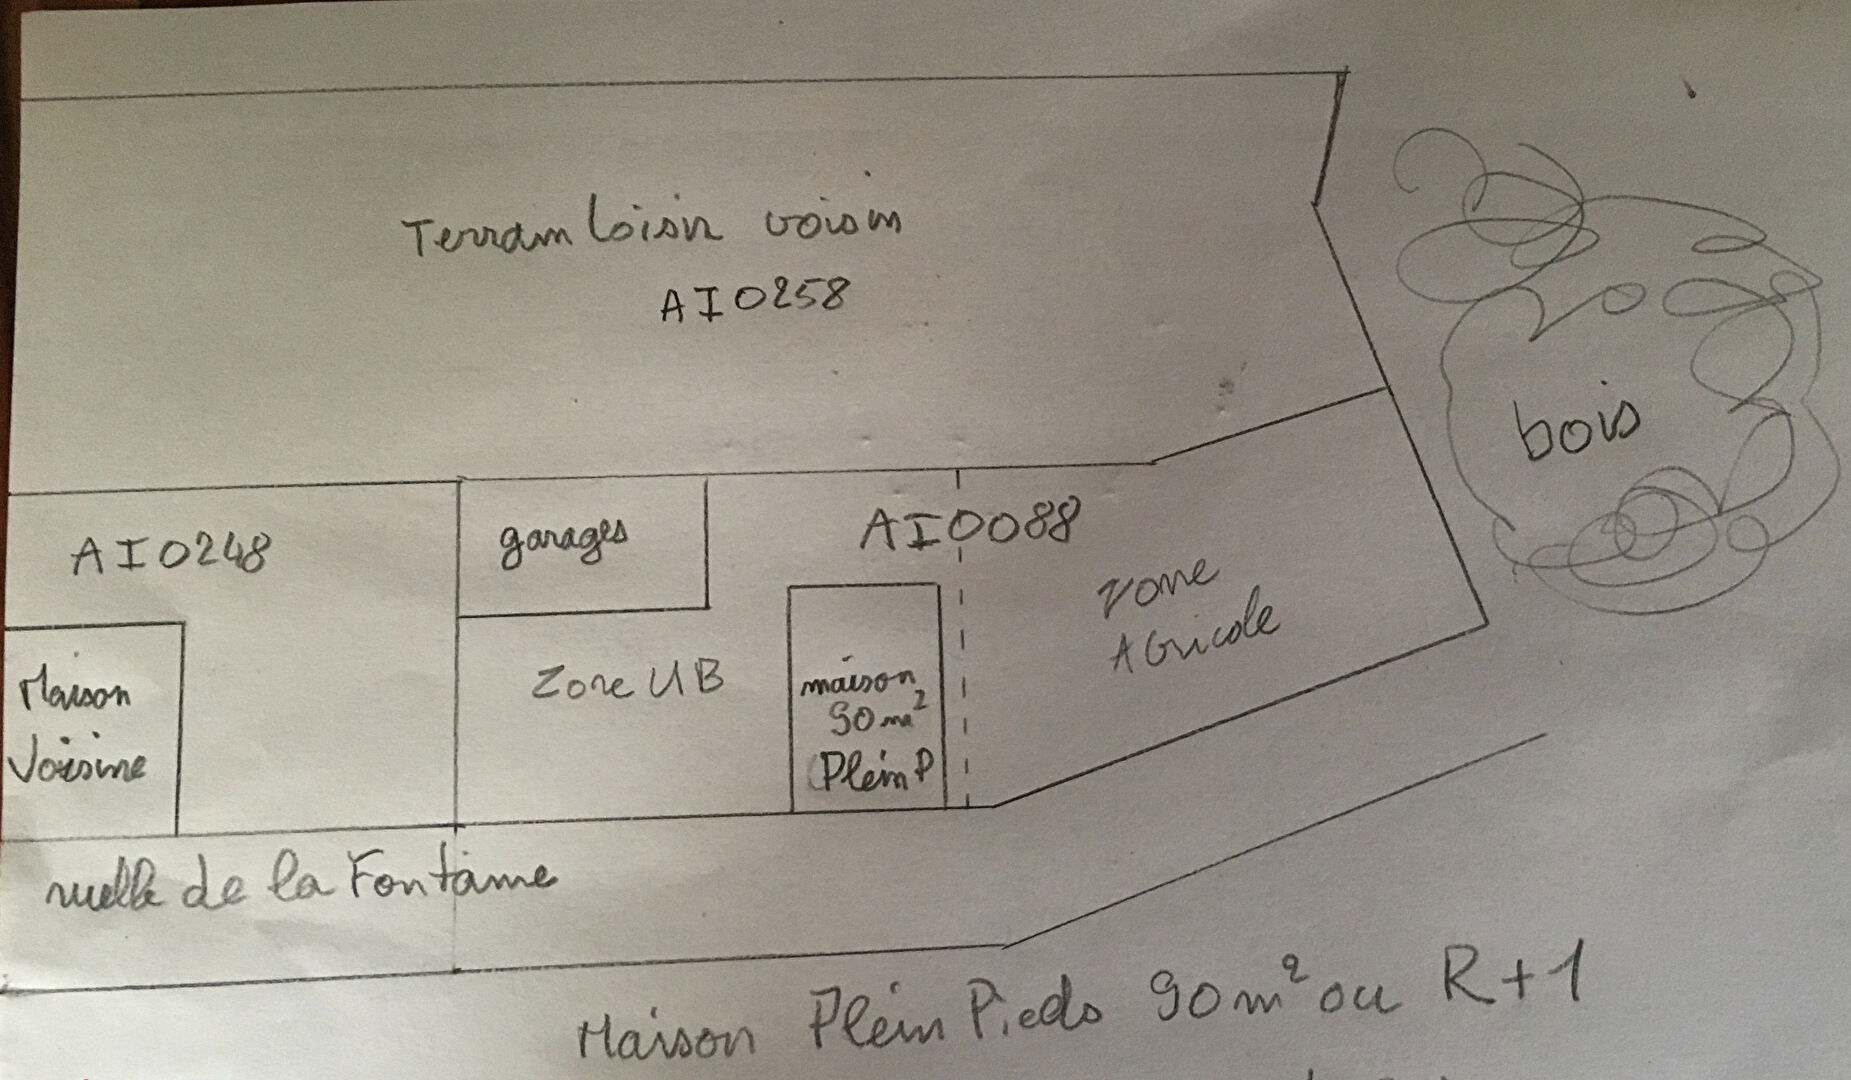 Terrain Loisir voisin
AI0258
bois
AI0248
garages
AI0088
zone
AGricole
Maison
Voisine
Zone UB
maison
90 m²
Plein P
ruelle de la Fontaine
Maison Plein Pieds 90 m² ou R+1